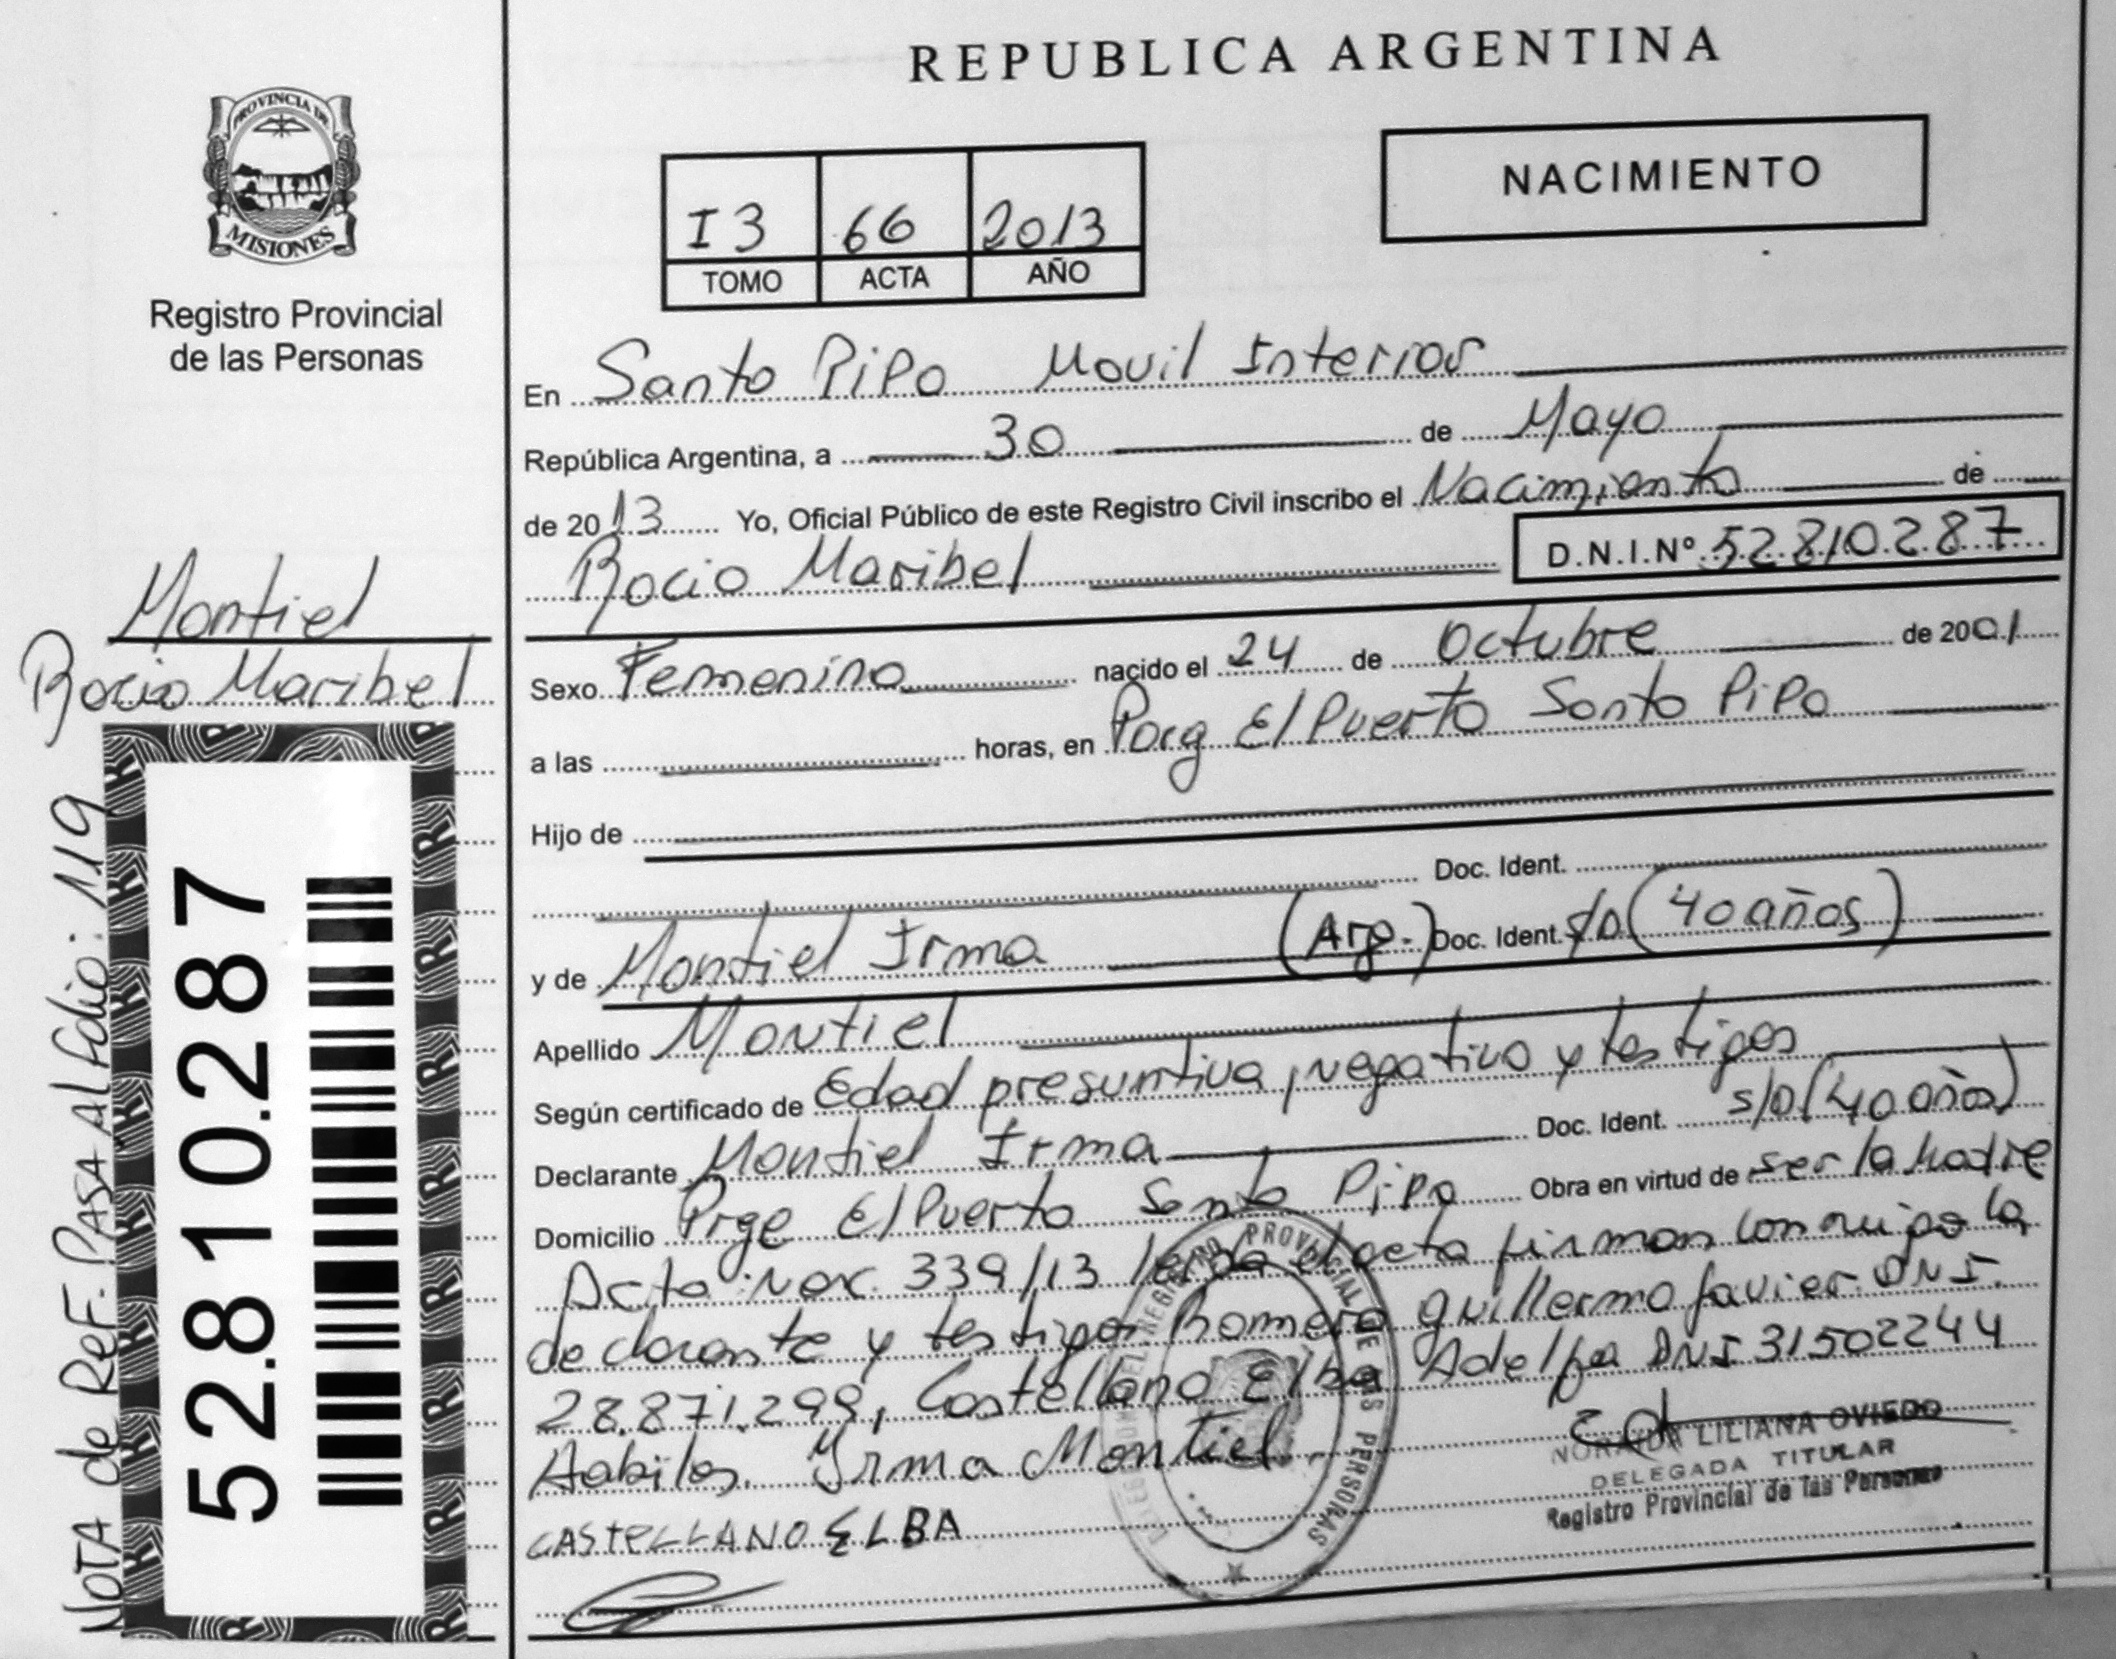 REPUBLICA ARGENTINA
PROVINCIA DE
MISIONES
Registro Provincial
de las Personas
NACIMIENTO
I3 66 2013
TOMO ACTA AÑO
En Santo Pipo Movil Interior
República Argentina, a 30 de Mayo
de 2013 Yo, Oficial Público de este Registro Civil inscribo el Nacimiento de
Rocio Maribel D.N.I.Nº 52.810.287
Montiel
Rocio Maribel
Sexo Femenino nacido el 24 de Octubre de 2001
a las horas, en Parg El Puerto Santo Pipo
Hijo de
Doc. Ident.
y de Montiel Irma (Arg.) Doc. Ident. s/D (40 años)
Apellido Montiel
Según certificado de Edad presuntiva, negativo y testigos
Declarante Montiel Irma Doc. Ident. s/D (40 años)
Domicilio Prge El Puerto Santo Pipo Obra en virtud de ser la Madre
Acto Nov. 339/13 el acta firman conmigo la
declarante y testigos Romero Guillermo Javier DNI.
28.871.299, Castellano Elba Adelfa DNI 31502244
Habiles. Irma Montiel
CASTELLANO ELBA
NORAIDA LILIANA OVIEDO
DELEGADA TITULAR
Registro Provincial de las Personas
REGISTRO PROVINCIAL DE LAS PERSONAS
NOTA de ReF. PASA Al folio: 119
52.810.287